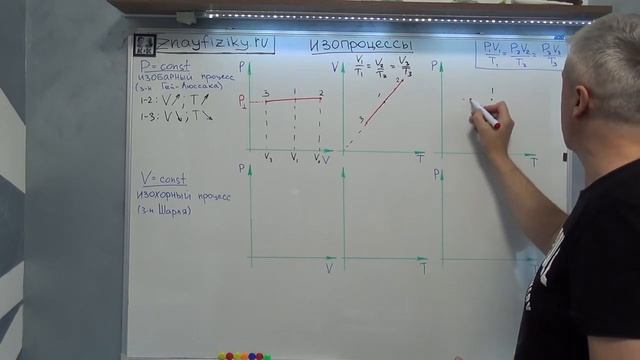 znayfiziky.ru
ИЗОПРОЦЕССЫ
P₁V₁/T₁ = P₂V₂/T₂ = P₃V₃/T₃
P = const
ИЗОБАРНЫЙ ПРОЦЕСС
(з-н Гей-Люссака)
1-2: V↗; T↗
1-3: V↘; T↘
P
P₁
3 1 2
V₃ V₁ V₂ V
V₁/T₁ = V₂/T₂ = V₃/T₃
2
1
3
T
P
1
T
V = const
ИЗОХОРНЫЙ ПРОЦЕСС
(з-н Шарля)
P
V
V
T
P
T